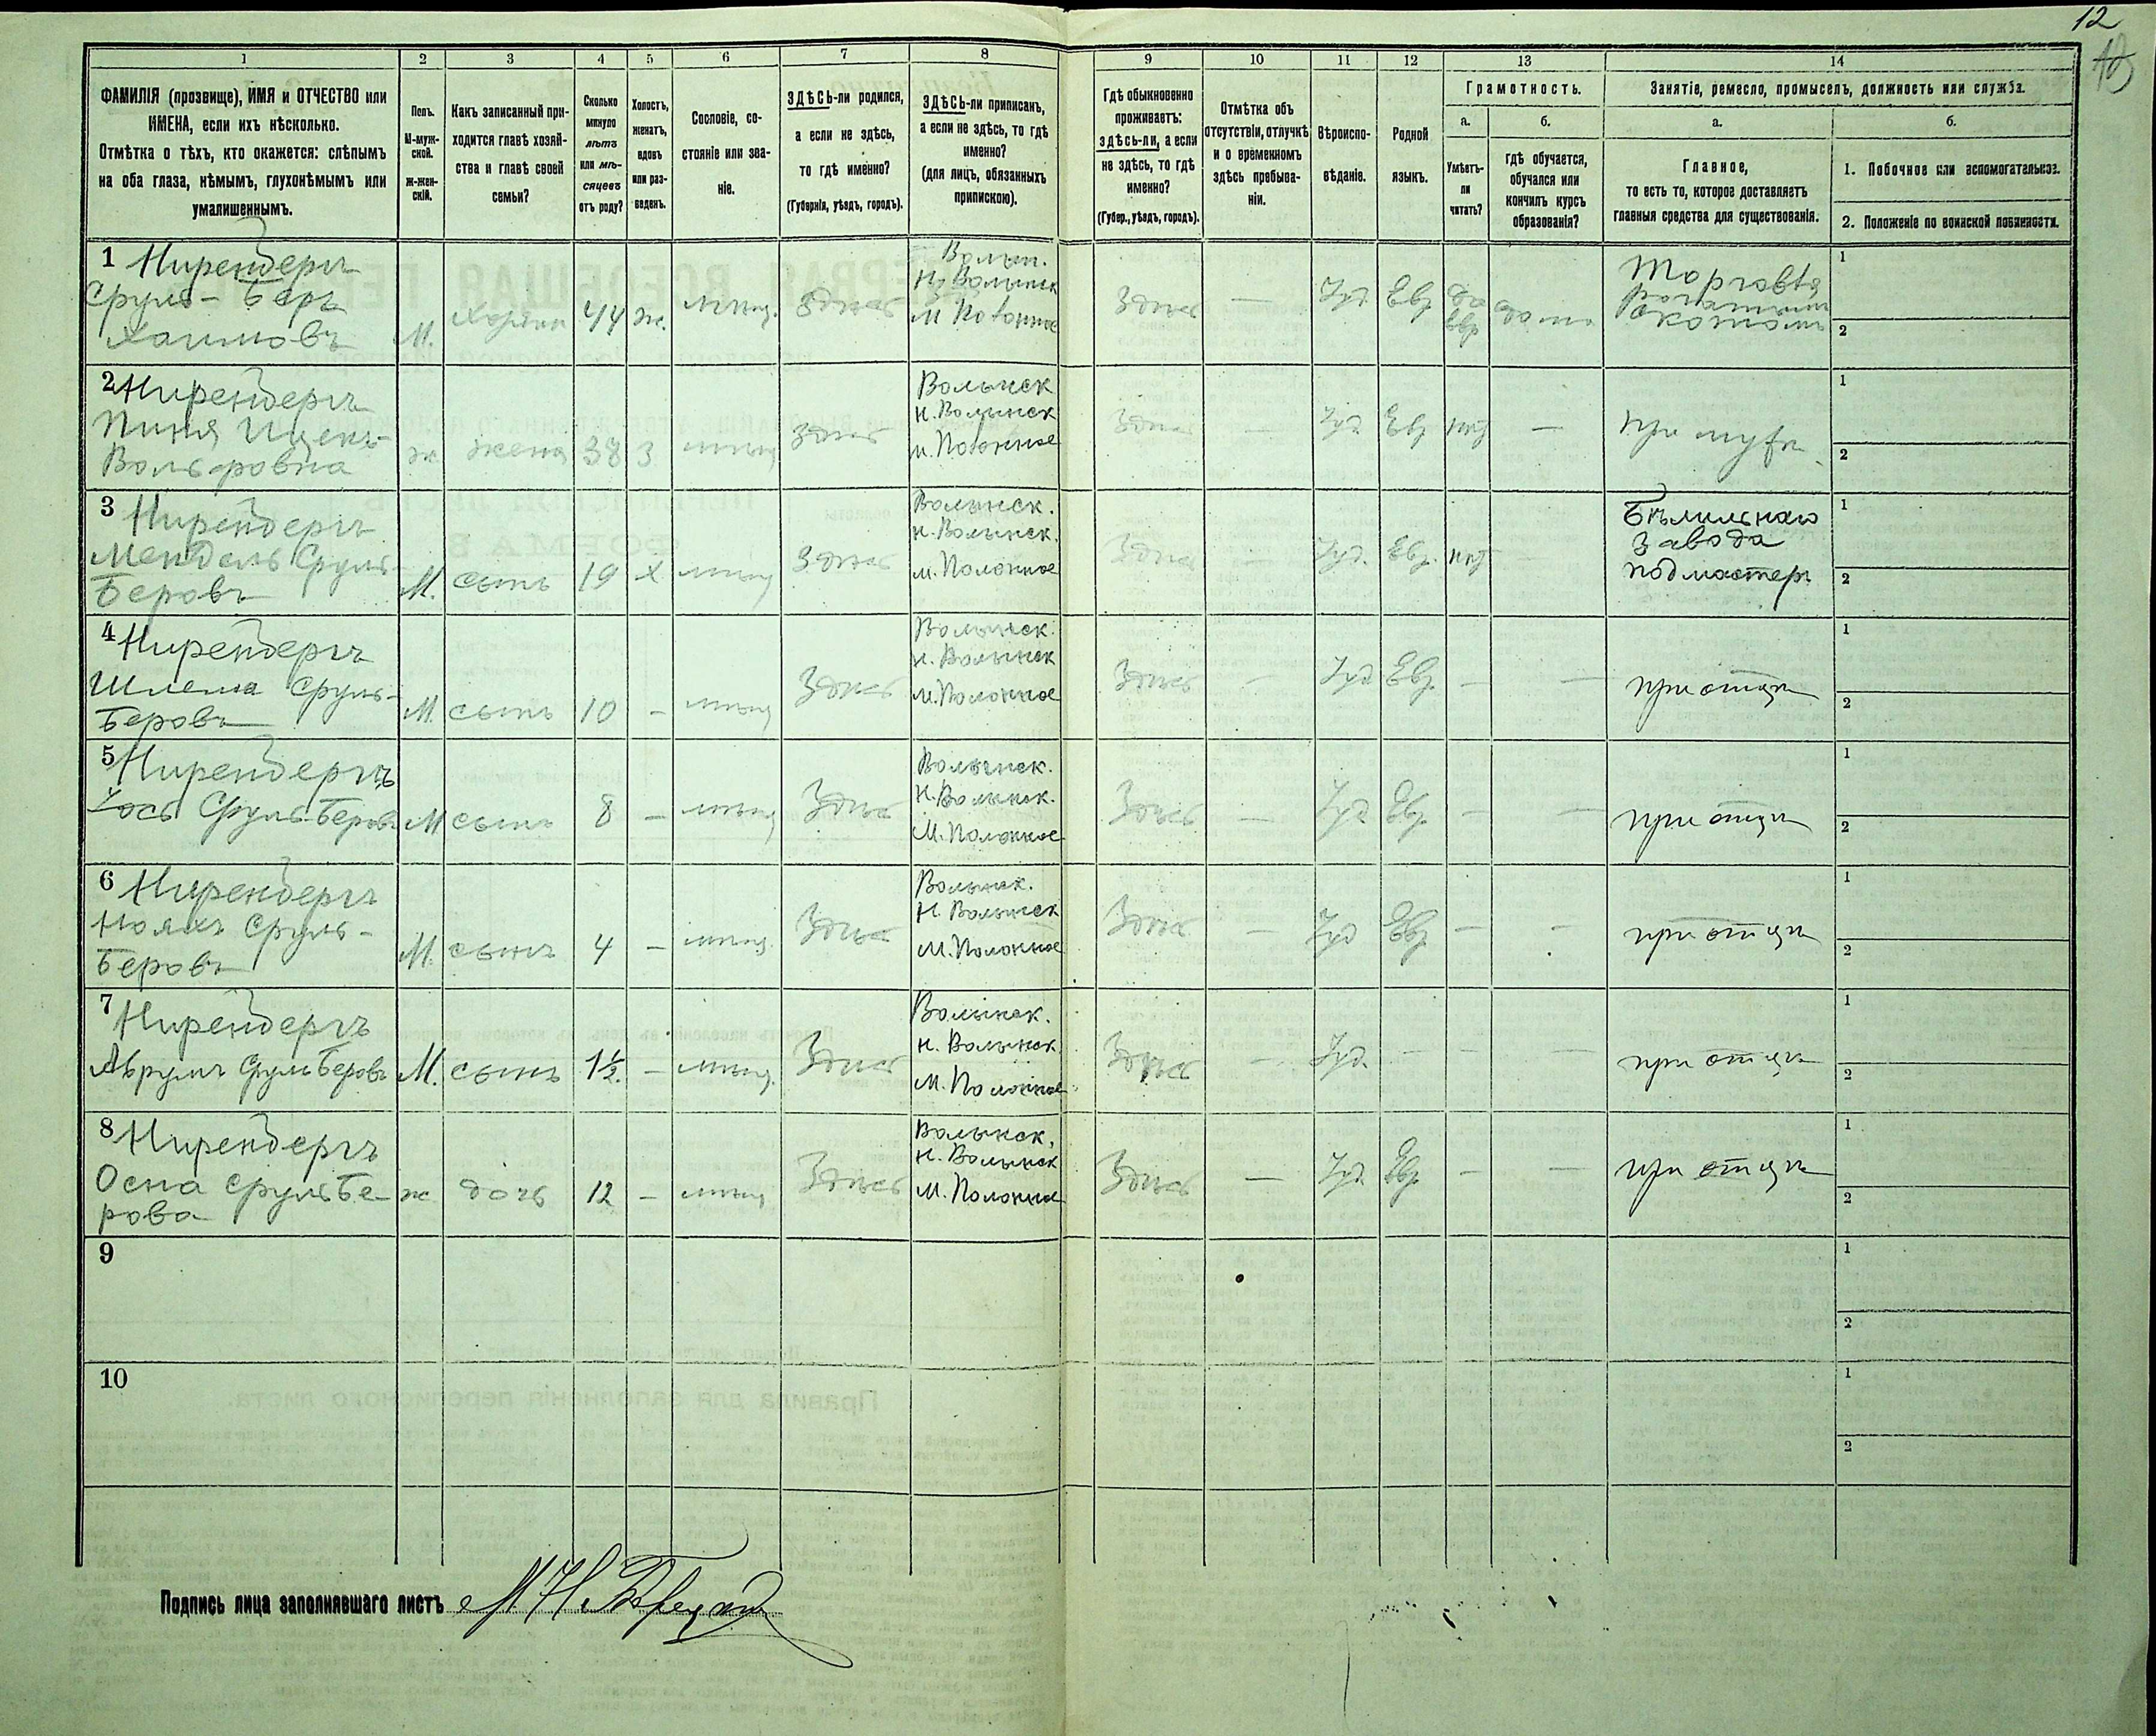 12
1 2 3 4 5 6 7 8 9 10 11 12 13 14
ФАМИЛІЯ (прозвище), ИМЯ и ОТЧЕСТВО или
ИМЕНА, если ихъ нѣсколько.
Отмѣтка о тѣхъ, кто окажется: слѣпымъ
на оба глаза, нѣмымъ, глухонѣмымъ или
умалишеннымъ.
Полъ.
М-муж-
ской.
Ж-жен-
скій.
Какъ записанный при-
ходится главѣ хозяй-
ства и главѣ своей
семьи?
Сколько
минуло
лѣтъ
или мѣ-
сяцевъ
отъ роду?
Холостъ,
женатъ,
вдовъ
или раз-
веденъ.
Сословіе, со-
стояніе или зва-
ніе.
ЗДѢСЬ-ли родился,
а если не здѣсь,
то гдѣ именно?
(Губернія, уѣздъ, городъ).
ЗДѢСЬ-ли приписанъ,
а если не здѣсь, то гдѣ
именно?
(для лицъ, обязанныхъ
припискою).
Гдѣ обыкновенно
проживаетъ:
здѣсь-ли, а если
не здѣсь, то гдѣ
именно?
(Губер., уѣздъ, городъ).
Отмѣтка объ
отсутствіи, отлучкѣ
и о временномъ
здѣсь пребыва-
ніи.
Вѣроиспо-
вѣданіе.
Родной
языкъ.
Грамотность.
а.
Умѣетъ-
ли
читать?
б.
гдѣ обучается,
обучался или
кончилъ курсъ
образованія?
Занятіе, ремесло, промыселъ, должность или служба.
а.
Главное,
то есть то, которое доставляетъ
главныя средства для существованія.
б.
1. Побочное или вспомогательное.
2. Положеніе по воинской повинности.
1 Ниренбергъ
Сруль-Беръ
Хаимовъ
М. хозяин 44 ж. мѣщ. Здѣсь
Волын.
Н. Волынск
м Полонное
Здѣсь — Іуд Евр да
евр дома
Торговля
скотомъ
1
2
2 Ниренбергъ
Ицекъ-
Вольфовна
ж жена 38 З мѣщ Здѣсь
Волынск
Н. Волынск
м. Полонное
Здѣсь — Іуд Евр нѣт — при мужѣ
1
2
3 Ниренбергъ
Мендель Сруль-
Беровъ
М. сынъ 19 х мѣщ Здѣсь
Волынск.
н. Волынск.
м. Полонное
Здѣсь — Іуд. Евр. нѣт
Бѣлильнаго
завода
подмастер
1
2
4 Ниренбергъ
Шлема Сруль-
Беровъ
М. сынъ 10 — мѣщ Здѣсь
Волынск.
н. Волынск
м. Полонное
Здѣсь — Іуд Евр. — — при отцѣ
1
2
5 Ниренбергъ
Іось Сруль-Беровъ М сынъ 8 — мѣщ Здѣсь
Волынск.
Н. Волынск.
М. Полонное
Здѣсь — Іуд Евр. — — при отцѣ
1
2
6 Ниренбергъ
Нояхъ Сруль-
Беровъ
М. сынъ 4 — мѣщ. Здѣсь
Волынск.
Н. Волынск
М. Полонное
Здѣсь — Іуд Евр. — — при отцѣ
1
2
7 Ниренбергъ
Абрумъ Сруль Беровъ М. сынъ 1½. — мѣщ. Здѣсь
Волынск.
н. Волынск.
м. Полонное
Здѣсь — Іуд. — — — при отцѣ
1
2
8 Ниренбергъ
Осна Сруль Бе-
рова
ж дочь 12 — мѣщ Здѣсь
Волынск.
н. Волынск
М. Полонное
Здѣсь — Іуд Евр. — — при отцѣ
1
2
9
1
2
10
1
2
Подпись лица заполнявшаго листъ